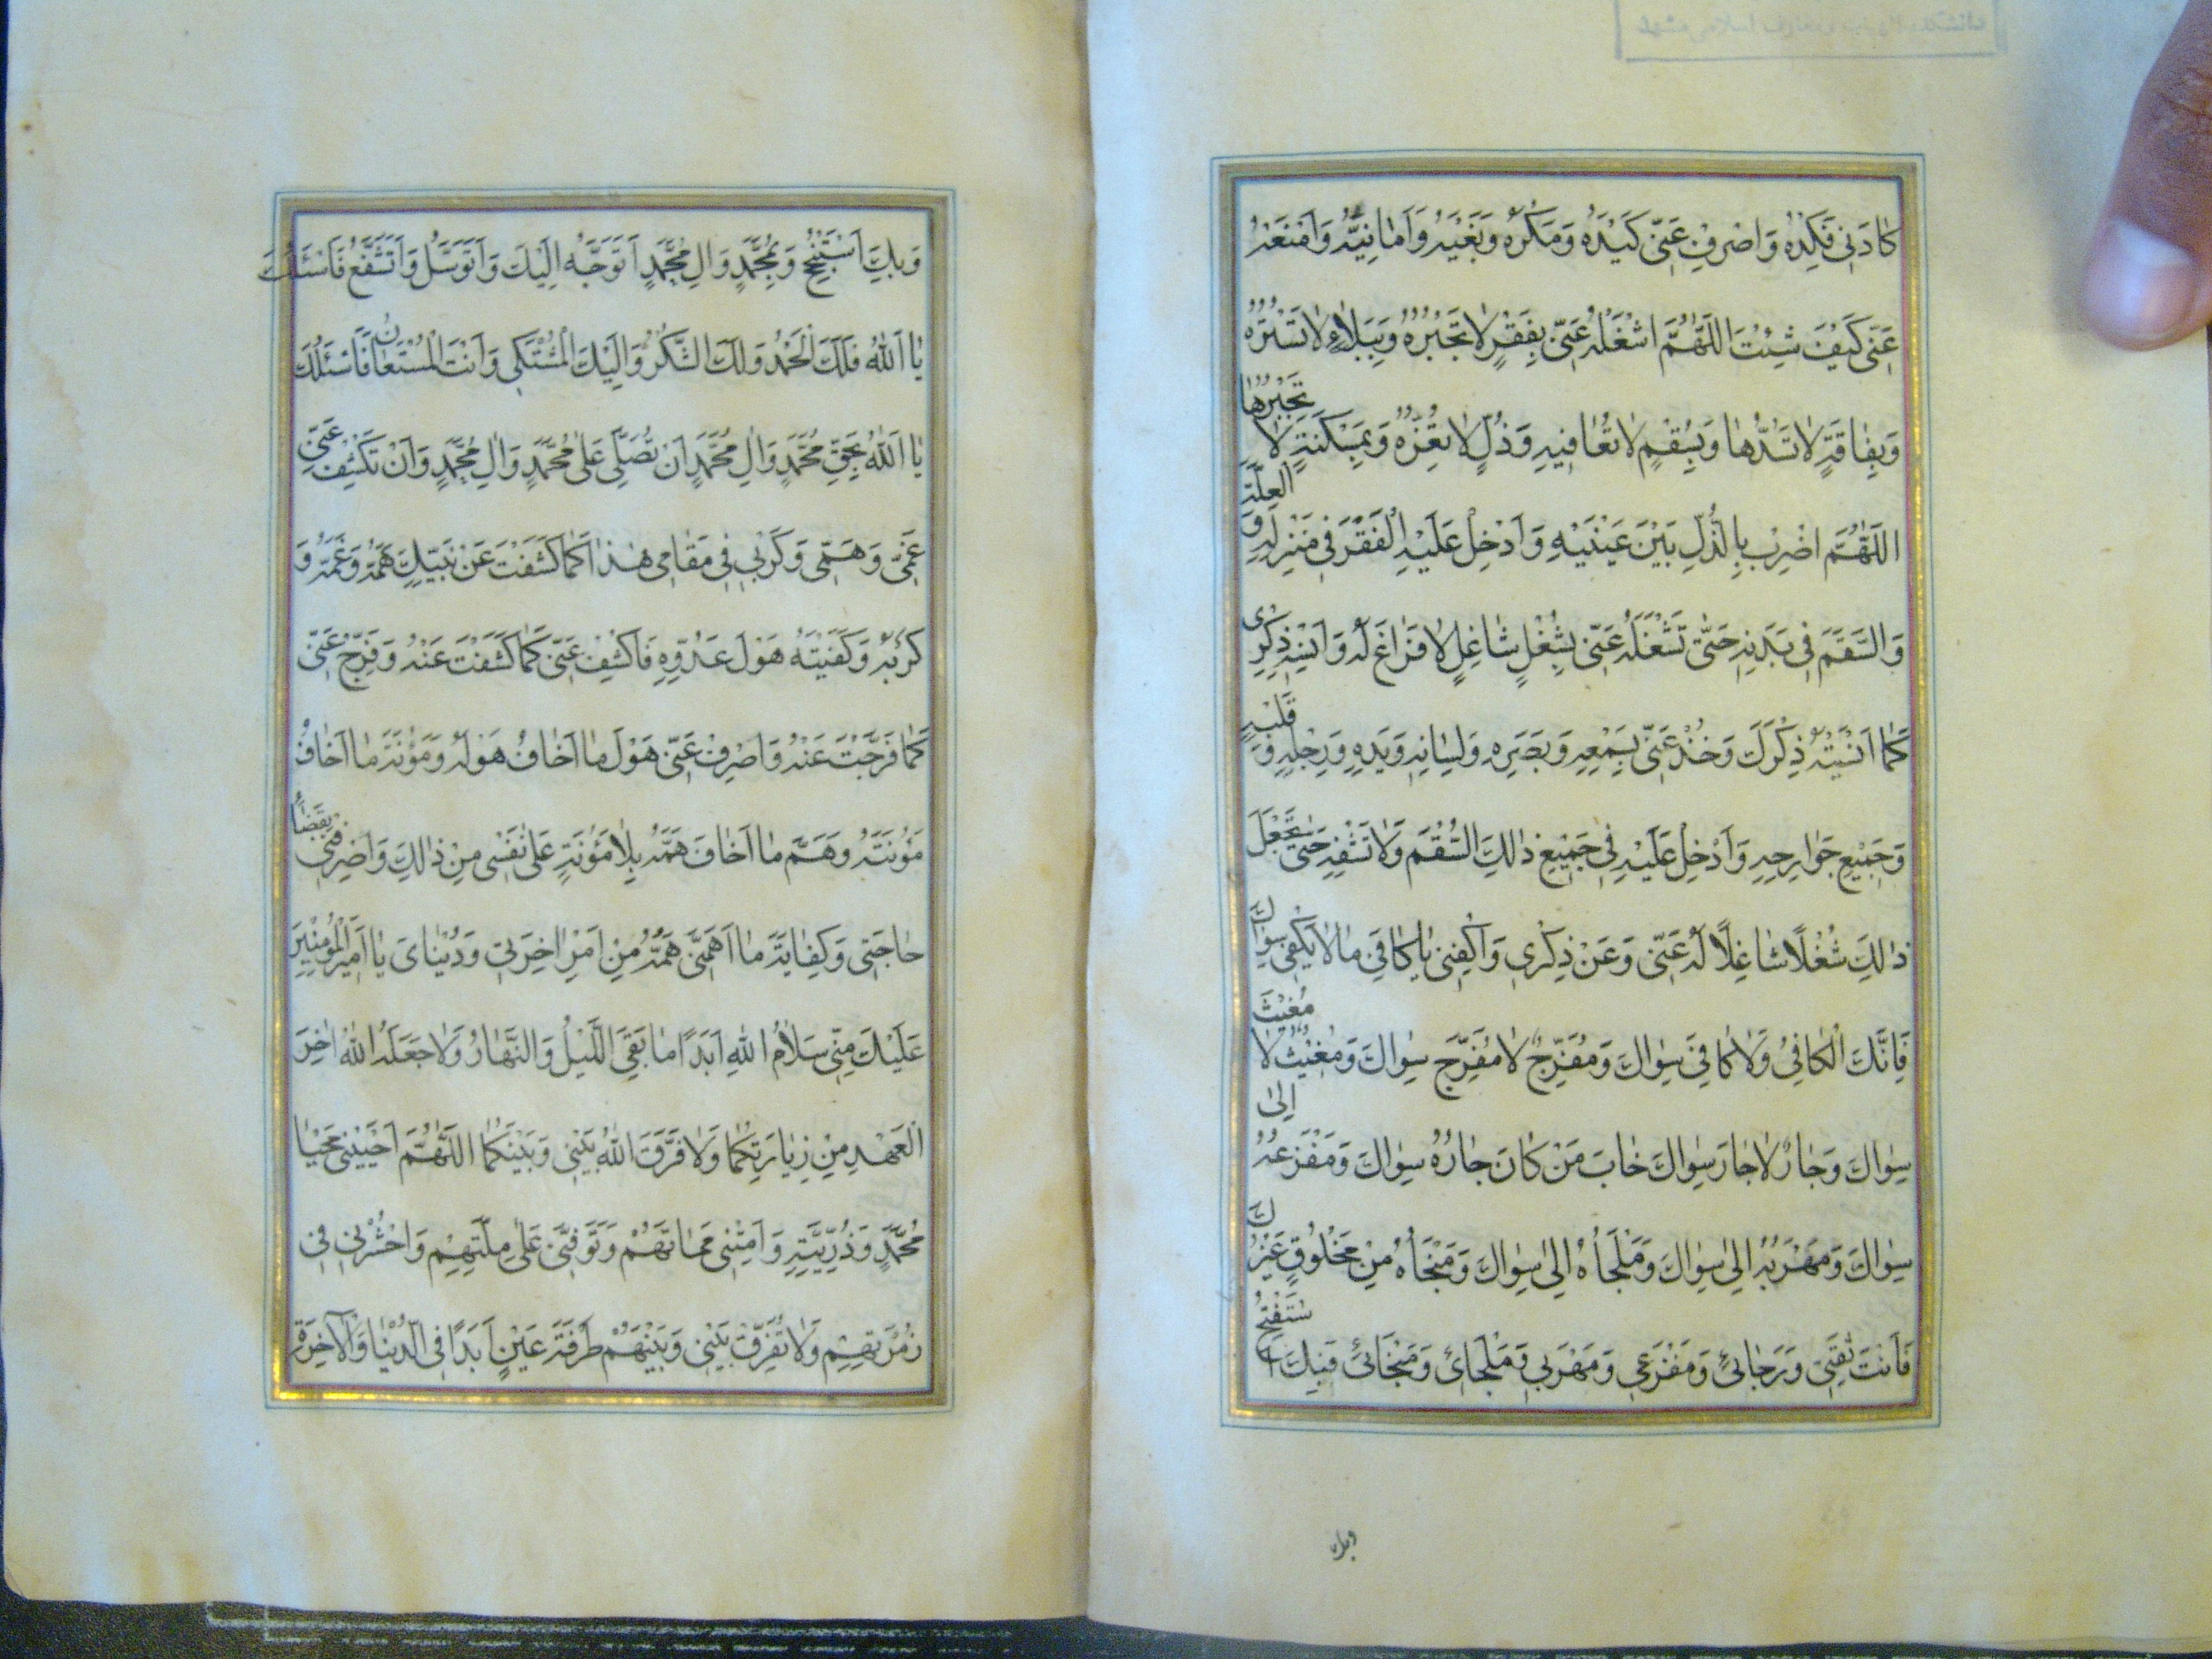 كٰادَنِي فَكِدْهُ وَاصْرِفْ عَنّي كَيْدَهُ وَمَكْرَهُ وَبَغْيَهُ وَاَمٰانِيَّهُ وَامْنَعْهُ
عَنّي كَيْفَ شِئْتَ اللّٰهُمَّ اشْغَلْهُ عَنّي بِفَقْرٍ لٰا تَجْبُرُهُ وَبِبَلٰاءٍ لٰا تَسْتُرُهُ
وَبِفٰاقَةٍ لٰا تَسُدُّهٰا وَبِسُقْمٍ لٰا تُعٰافِيهِ وَذُلٍّ لٰا تُعِزُّهُ وَبِمَسْكَنَةٍ لٰا تَجْبُرُهٰا
اللّٰهُمَّ اضْرِبْ بِالذُّلِّ بَيْنَ عَيْنَيْهِ وَاَدْخِلْ عَلَيْهِ الْفَقْرَ فِي مَنْزِلِهِ وَ الْعِلَّةَ
وَالسَّقَمَ فِي بَدَنِهِ حَتّٰى تَشْغَلَهُ عَنّي بِشُغْلٍ شٰاغِلٍ لٰا فَرٰاغَ لَهُ وَاَنْسِهِ ذِكْرِي
كَمٰا اَنْسَيْتَهُ ذِكْرَكَ وَخُذْ عَنّي بِسَمْعِهِ وَبَصَرِهِ وَلِسٰانِهِ وَيَدِهِ وَرِجْلِهِ وَ قَلْبِهِ
وَجَمِيْعِ جَوٰارِحِهِ وَاَدْخِلْ عَلَيْهِ فِي جَمِيْعِ ذٰلِكَ السُّقْمَ وَلٰا تَشْفِهِ حَتّٰى تَجْعَلَ
ذٰلِكَ شُغْلًا شٰاغِلًا لَهُ عَنّي وَعَنْ ذِكْرِي وَاكْفِنِي يٰا كٰافِيَ مٰا لٰا يَكْفِي سِوٰاكَ
فَاِنَّكَ الْكٰافِيُ وَلٰا كٰافِيَ سِوٰاكَ وَمُفَرِّجٌ لٰا مُفَرِّجَ سِوٰاكَ وَمُغِيْثٌ لٰا مُغِيْثَ
سِوٰاكَ وَجٰارٌ لٰا جٰارَ سِوٰاكَ خٰابَ مَنْ كٰانَ جٰارُهُ سِوٰاكَ وَمَفْزَعُهُ اِلٰى
سِوٰاكَ وَمَهْرَبُهُ اِلٰى سِوٰاكَ وَمَلْجَأُهُ اِلٰى سِوٰاكَ وَمَنْجَأُهُ مِنْ مَخْلُوقٍ غَيْرِكَ
فَاَنْتَ ثِقَتِي وَرَجٰائِي وَمَفْزَعِي وَمَهْرَبِي وَمَلْجَائِي وَمَنْجَائِي فَبِكَ اَسْتَفْتِحُ
وبك
وَبِكَ اَسْتَنْجِحُ وَبِمُحَمَّدٍ وَاٰلِ مُحَمَّدٍ اَتَوَجَّهُ اِلَيْكَ وَاَتَوَسَّلُ وَاَتَشَفَّعُ فَاَسْئَلُكَ
يٰا اَللهُ فَلَكَ الْحَمْدُ وَلَكَ الشُّكْرُ وَاِلَيْكَ الْمُشْتَكٰى وَاَنْتَ الْمُسْتَعٰانُ فَاَسْئَلُكَ
يٰا اَللهُ بِحَقِّ مُحَمَّدٍ وَاٰلِ مُحَمَّدٍ اَنْ تُصَلِّيَ عَلٰى مُحَمَّدٍ وَاٰلِ مُحَمَّدٍ وَاَنْ تَكْشِفَ عَنّي
غَمّي وَهَمّي وَكَرْبي فِي مَقٰامي هٰذٰا كَمٰا كَشَفْتَ عَنْ نَبِيِّكَ هَمَّهُ وَغَمَّهُ وَ
كَرْبَهُ وَكَفَيْتَهُ هَوْلَ عَدُوِّهِ فَاكْشِفْ عَنّي كَمٰا كَشَفْتَ عَنْهُ وَفَرِّجْ عَنّي
كَمٰا فَرَّجْتَ عَنْهُ وَاصْرِفْ عَنّي هَوْلَ مٰا اَخٰافُ هَوْلَهُ وَمَؤُنَةَ مٰا اَخٰافُ
مَؤُنَتَهُ وَهَمَّ مٰا اَخٰافُ هَمَّهُ بِلٰا مَؤُنَةٍ عَلٰى نَفْسي مِنْ ذٰلِكَ وَاصْرِفْني بِقَضٰاءِ
حٰاجَتي وَكِفٰايَةِ مٰا اَهَمَّني هَمُّهُ مِنْ اَمْرِ اٰخِرَتي وَدُنْيٰايَ يٰا اَمِيْرَ الْمُؤْمِنِيْنَ
عَلَيْكَ مِنّي سَلٰامُ اللهِ اَبَدًا مٰا بَقِيَ اللَّيْلُ وَالنَّهٰارُ وَلٰا جَعَلَهُ اللهُ اٰخِرَ
الْعَهْدِ مِنْ زِيٰارَتِكُمٰا وَلٰا فَرَّقَ اللهُ بَيْنِي وَبَيْنَكُمٰا اللّٰهُمَّ اَحْيِنِي مَحْيٰا
مُحَمَّدٍ وَذُرِّيَّتِهِ وَاَمِتْنِي مَمٰاتَهُمْ وَتَوَفَّنِي عَلٰى مِلَّتِهِمْ وَاحْشُرْنِي فِي
زُمْرَتِهِمْ وَلٰا تُفَرِّقْ بَيْنِي وَبَيْنَهُمْ طَرْفَةَ عَيْنٍ اَبَدًا فِي الدُّنْيٰا وَالْاٰخِرَةِ